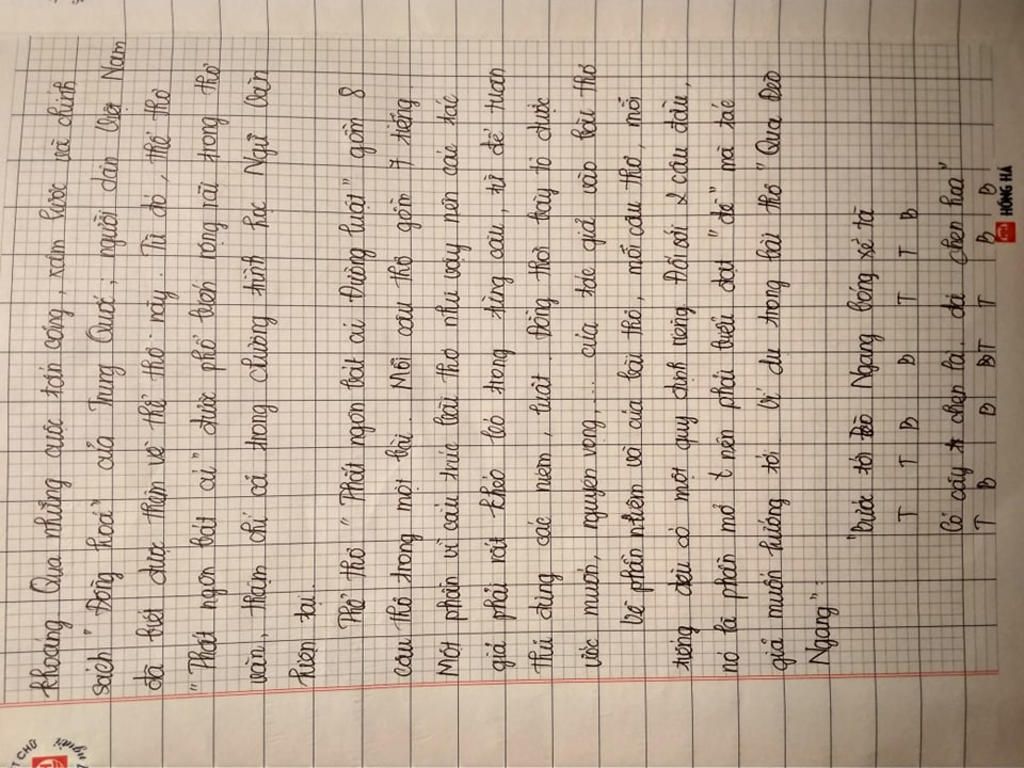 khoáng. Qua những cuộc tấn công, xâm lược và chính
sách "Đồng hoá" của Trung Quốc; người dân Việt Nam
đã biết được thêm về thể thơ này. Từ đó, thể thơ
"Thất ngôn bát cú" được phổ biến rộng rãi trong thơ
văn, thậm chí cả trong chương trình học Ngữ Văn
hiện tại.
Thể thơ "Thất ngôn bát cú Đường luật" gồm 8
câu thơ trong một bài. Mỗi câu thơ gồm 7 tiếng.
Một phần vì cấu trúc bài thơ như vậy nên các tác
giả phải rất khéo léo trong từng câu, từ để tuân
thủ đúng các niêm, luật. Đồng thời bày tỏ được
ước muốn, nguyện vọng,... của tác giả vào bài thơ
Về phần nhiệm vụ của bài thơ, mỗi câu thơ, mỗi
tiếng đều có một quy định riêng. Đối với 2 câu đầu,
nó là phần mở nên phải biểu đạt "đề" mà tác
giả muốn hướng tới. Ví dụ trong bài thơ "Qua Đèo
Ngang":
"Bước tới Đèo Ngang bóng xế tà
T T B B T T B
Cỏ cây chen lá, đá chen hoa"
T B B T T B B
HỒNG HÀ